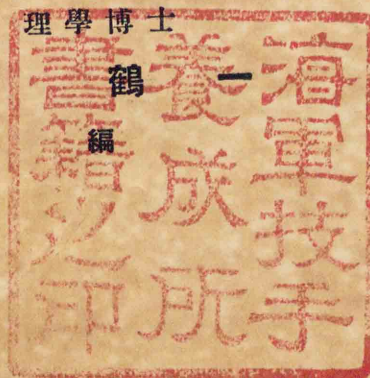 理學博士
鶴 一
編
海軍技手
養成所
書籍之印